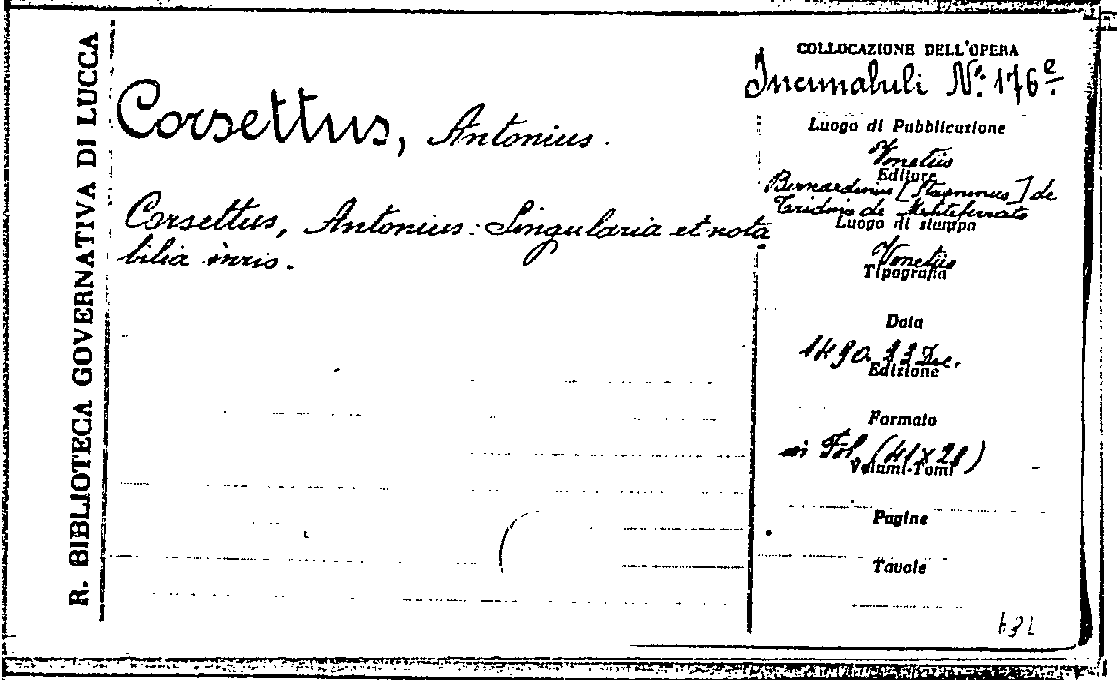 R. BIBLIOTECA GOVERNATIVA DI LUCCA
Corsettus, Antonius.
Corsettus, Antonius: Singularia et nota
bilia iuris.
COLLOCAZIONE DELL'OPERA
Incunabuli N.º 176 e
Luogo di Pubblicazione
Venetiis
Editore
Bernardinus [Stagninus] de
Tridino de Monteferrato
Luogo di stampa
Venetiis
Tipografia
Data
1490. Dec.
Edizione
Formato
in Fol. (41x28)
Volumi-Tomi
Pagine
Tavole